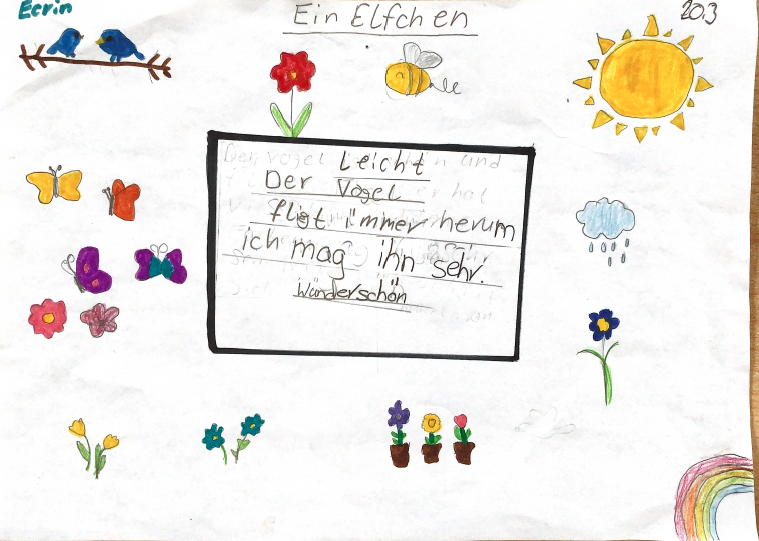 Ecrin
Ein Elfchen
20.3
Leicht
Der Vogel
fligt immer herum
ich mag ihn sehr.
wünderschön